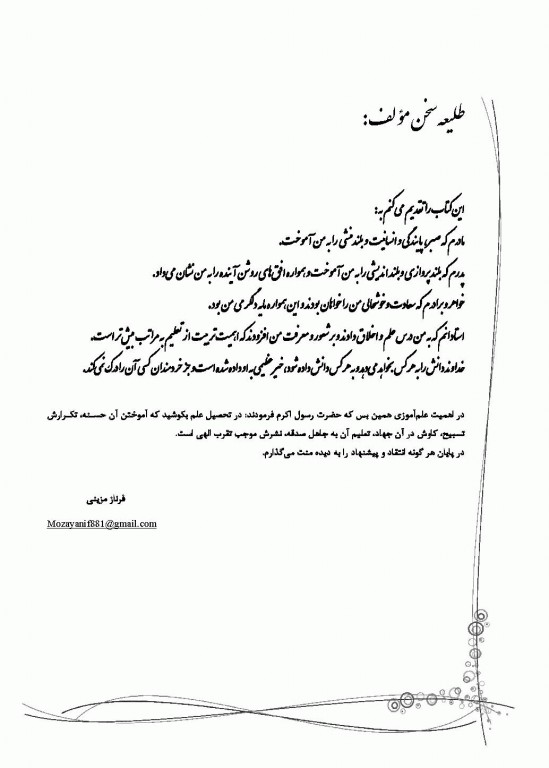 طلیعه سخن مؤلف:
این کتاب را تقدیم می‌کنم به:
مادرم که صبر، پایندگی و انسانیت و بلندمنشی را به من آموخت.
پدرم که بلندپروازی و بلنداندیشی را به من آموخت و همواره افق‌های روشن آینده را به من نشان می‌داد.
خواهر و برادرم که سعادت و خوشحالی من را خواهان بودند و این همواره مایه دلگرمی من بود.
استادانم که به من درس علم و اخلاق دادند و بر شعور و معرفت من افزودند که اهمیت تربیت از تعلیم به مراتب بیش‌تر است.
خداوند دانش را به هر کس بخواهد می‌دهد و به هر کس دانش داده شود، خیر عظیمی به او داده شده است و جز خردمندان کسی آن را درک نمی‌کند.
در اهمیت علم‌آموزی همین بس که حضرت رسول اکرم فرمودند: در تحصیل علم بکوشید که آموختن آن حسنه، تکرارش
تسبیح، کاوش در آن جهاد، تعلیم آن به جاهل صدقه، نشرش موجب تقرب الهی است.
در پایان هر گونه انتقاد و پیشنهاد را به دیده منت می‌گذارم.
فرناز مزینی
Mozayanif881@gmail.com